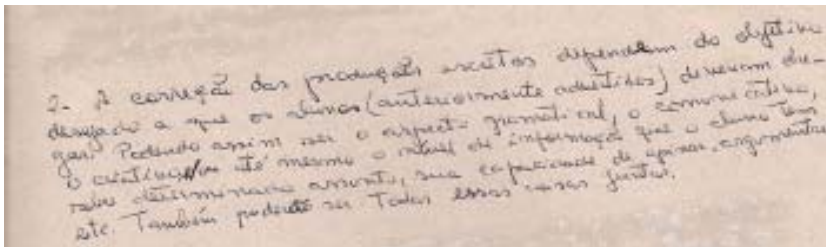 2- A correção das produções escritas dependem do objetivo
desejado a que os alunos (anteriormente advertidos) deveriam che-
gar. Podendo assim ser o aspecto gramatical, o comunicativo,
o criativo, ou até mesmo o nível de informação que o aluno tem
sobre determinado assunto, sua capacidade de opinar, argumentar
etc. Também poderão ser todas essas coisas juntas.